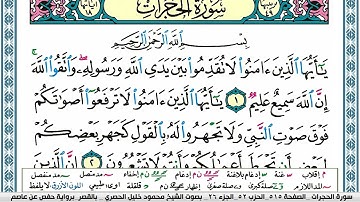 سورة الحجرات
بِسْمِ ٱللَّهِ ٱلرَّحْمَٰنِ ٱلرَّحِيمِ
يَٰٓأَيُّهَا ٱلَّذِينَ ءَامَنُوا۟ لَا تُقَدِّمُوا۟ بَيْنَ يَدَىِ ٱللَّهِ وَرَسُولِهِۦ ۖ وَٱتَّقُوا۟ ٱللَّهَ ۚ
إِنَّ ٱللَّهَ سَمِيعٌ عَلِيمٌ ١ يَٰٓأَيُّهَا ٱلَّذِينَ ءَامَنُوا۟ لَا تَرْفَعُوٓا۟ أَصْوَٰتَكُمْ
فَوْقَ صَوْتِ ٱلنَّبِىِّ وَلَا تَجْهَرُوا۟ لَهُۥ بِٱلْقَوْلِ كَجَهْرِ بَعْضِكُمْ
لِبَعْضٍ أَن تَحْبَطَ أَعْمَٰلُكُمْ وَأَنتُمْ لَا تَشْعُرُونَ ٢ إِنَّ ٱلَّذِينَ
سورة الحجرات الصفحة ٥١٥ الجزء ٢٦ بصوت الشيخ محمود خليل الحصري بالقصر برواية حفص عن عاصم